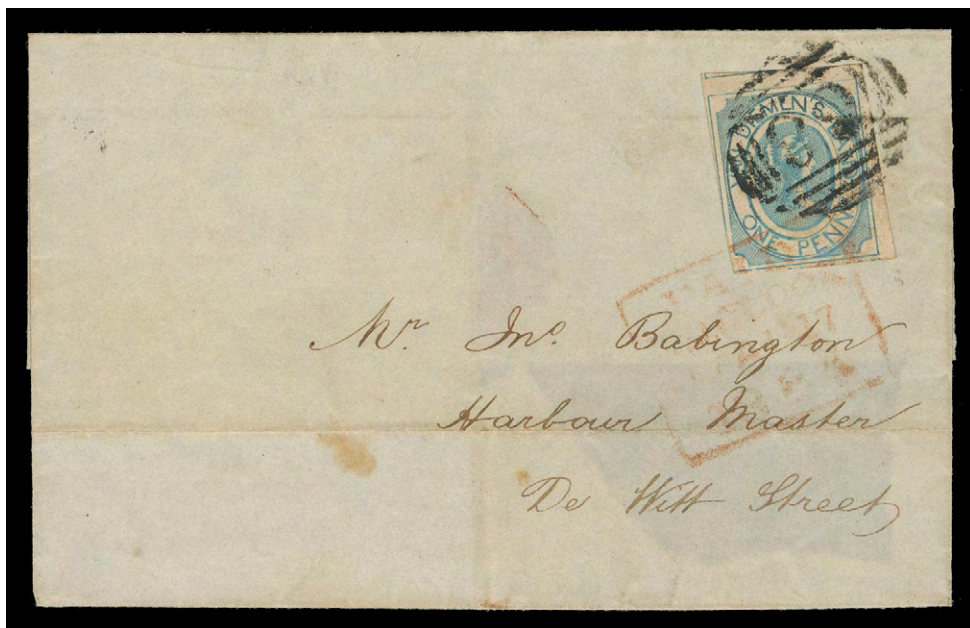 VAN DIEMEN'S LAND
ONE PENNY
Mr. Jno. Babington
Harbour Master
De Witt Street